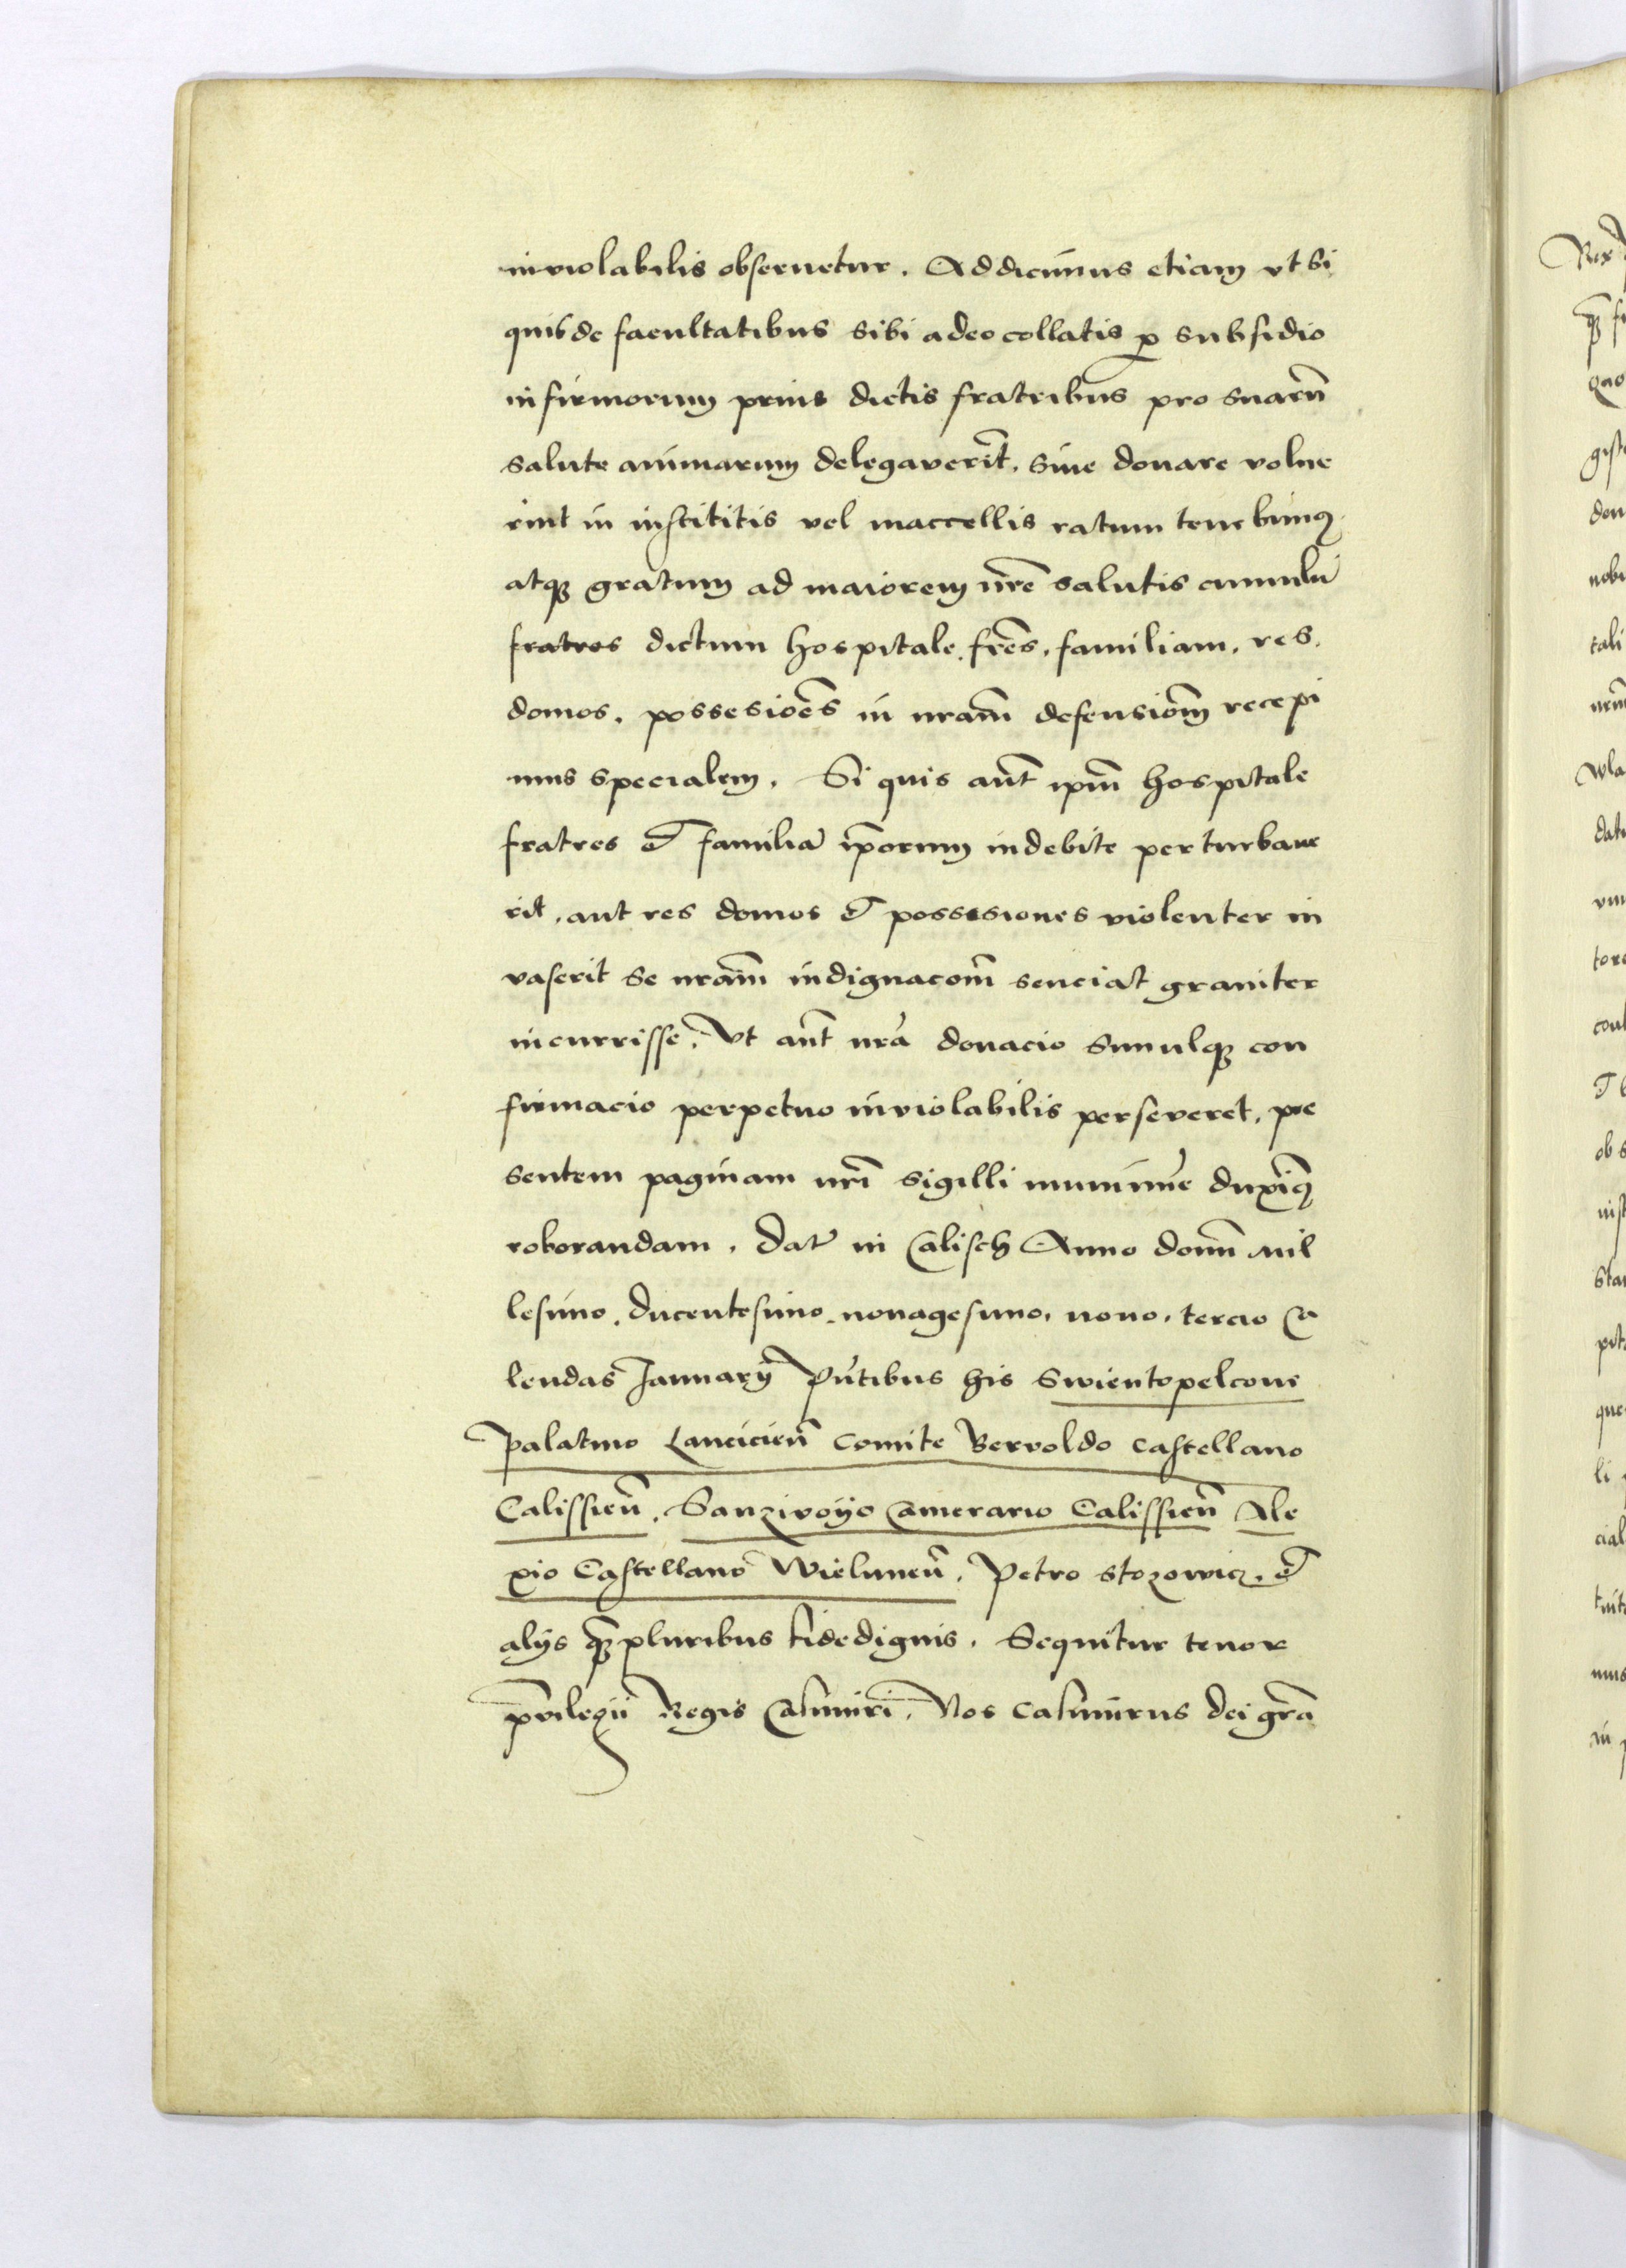 inviolabilis obseruetur. Addicimus etiam vt si
quis de facultatibus sibi a deo collatis p subsidio
infirmorum prius dictis fratribus pro suarũ
salute animarum delegaverĩt, siue donare volue
rint in instititis vel maccellis ratum tenebimꝰ
atqꝫ gratum ad maiorem nr̃e salutis cumulũ
fratres dictum hospitale. fr̃es. familiam. res.
domos. possesiões in nram̃ defensiõm recepi
mus specialem. Si quis aũt ipm̃ hospitale
fratres et familiã ip̃orum indebite perturbaue
rit, aut res domos et possesiones violenter in
vaserit se nram̃ indignacom̃ senciat grauiter
incurrisse. Vt aũt nr̃a donacio simulqꝫ con
firmacio perpetuo inviolabilis perseveret, pre
sentem paginam nr̃i sigilli munimine duximꝰ
roborandam. Dat̃ in Calisch Anno domĩ mil
lesimo. ducentesimo. nonagesimo. nono. tercio Ca
lendas Januarij Pñtibus his Swientopelcone
Palatino Lancicieñ comite Bervoldo castellano
Calissieñ. Sanziuoyo Camerario Calissieñ Ale
xio Castellano Wieluneñ. Petro Stozowicz. et
alijs qꝫ pluribus fidedignis. Sequitur tenor
p̃vilegii Regis Casimiri. Nos Casimirus dei gr̃a